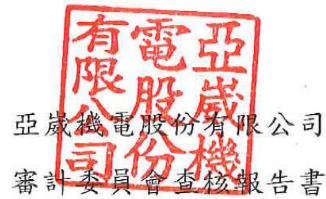 亞崴機
電股份
有限公司
亞崴機電股份有限公司
審計委員會查核報告書